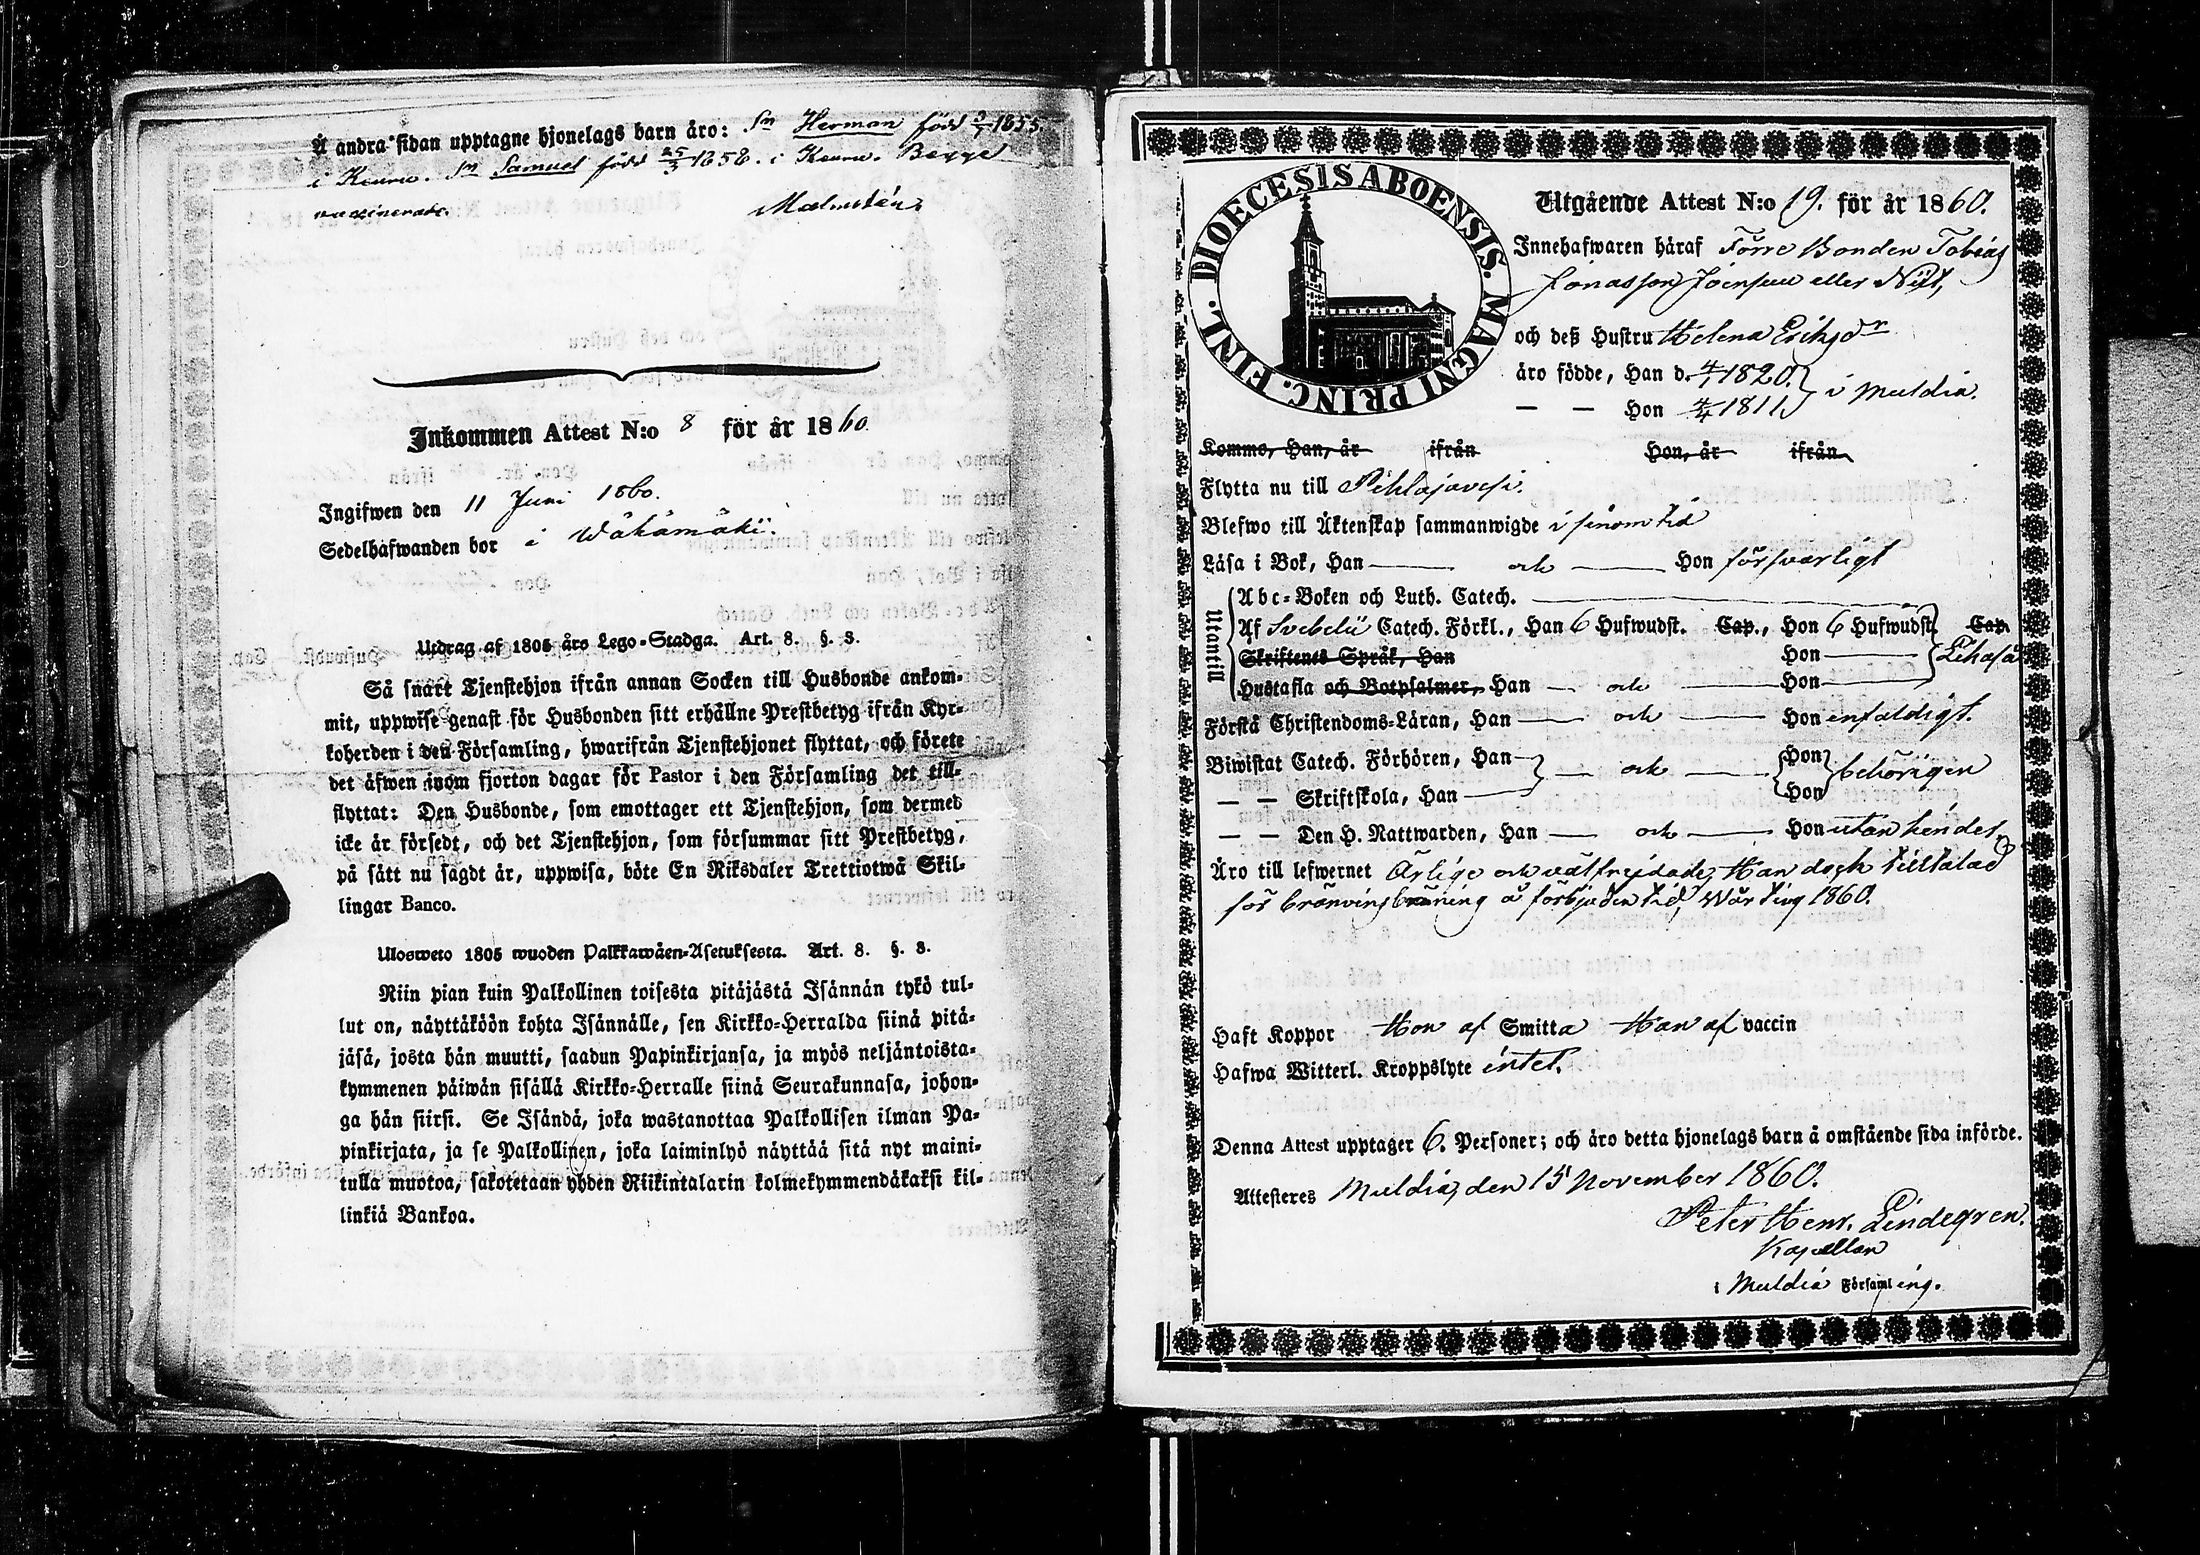 Å andra sidan upptagne hjonelags barn äro: Sn Herman född 9/7 1855
i Keuru. Sn Samuel född 25/3 1858. i Keuru. Bägge
vaccinerade.
Malmstén.
Inkommen Attest N:o 8 för år 1860
Ingifwen den 11 Juni 1860.
Sedelhafwanden bor i Wähämäki.
Utdrag af 1805 års Lego-Stadga. Art. 8. §. 3.
Så snart Tjenstehjon ifrån annan Socken till Husbonde ankom-
mit, uppwise genast för Husbonden sitt erhållne Prestbetyg ifrån Kyr-
koherden i den Församling, hwarifrån Tjenstehjonet flyttat, och förete
det äfwen inom fjorton dagar för Pastor i den Församling det till-
flyttat: Den Husbonde, som emottager ett Tjenstehjon, som dermed
icke är försedt, och det Tjenstehjon, som försummar sitt Prestbetyg,
på sätt nu sagdt är, uppwisa, böte En Riksdaler Trettiotwå Skil-
lingar Banco.
Ulosweto 1805 wuoden Palkkawäen-Asetuksesta. Art. 8. §. 3.
Niin pian kuin Palkollinen toisesta pitäjästä Isännän tykö tul-
lut on, näyttäköön kohta Isännälle, sen Kirkko-Herralda siinä pitä-
jäsä, josta hän muutti, saadun Papinkirjansa, ja myös neljäntoista-
kymmenen päiwän sisällä Kirkko-Herralle siinä Seurakunnasa, johon-
ga hän siirsi. Se Isändä, joka wastanottaa Palkollisen ilman Pa-
pinkirjata, ja se Palkollinen, joka laiminlyö näyttää sitä nyt maini-
tulla muotoa, sakotetaan yhden Riikintalarin kolmekymmendäkaksi kil-
linkiä Bankoa.
DIOECESIS ABOENSIS. MAGNI PRINC. FINL.
Utgående Attest N:o 19. för år 1860.
Innehafwaren häraf Förre Bonden Tobias
Jonasson Joensuu eller Niit,
och deß Hustru Helena Eriksdr
äro födde, Han d. 4/1 1820. } i Muldia.
— — Hon 4/4 1811
Kommo, Han, år ifrån Hon, år ifrån
Flytta nu till Pihlajavesi.
Blefwo till Äktenskap sammanwigde i sinom tid
Läsa i Bok, Han — och — Hon försvarligt
Utantill
Abc-Boken och Luth. Catech.
Af Svebelii Catech. Förkl., Han 6 Hufwudst. Cap., Hon 6 Hufwudst. Cap.
Skriftenes Språk, Han Hon —
Hustafla och Botpsalmer, Han — och — Hon —
Förstå Christendoms-Läran, Han — och — Hon enfaldigt.
Biwistat Catech. Förhören, Han — och — Hon behörigen
— — Skriftskola, Han — Hon
— — Den H. Nattwarden, Han — och — Hon utan hinder
Äro till lefwernet Ärlige och välfrejdade, Han dock tilltalad
för bränvinsbränning å förbjuden tid, Wårting 1860.
Haft Koppor Hon af Smitta Han af vaccin
Hafwa Witterl. Kroppslyte intet.
Denna Attest upptager 6. Personer; och äro detta hjonelags barn å omstående sida införde.
Attesteres Muldia, den 15 November 1860.
Peter Henr. Lindegren.
Kapellan
i Muldia Församling.